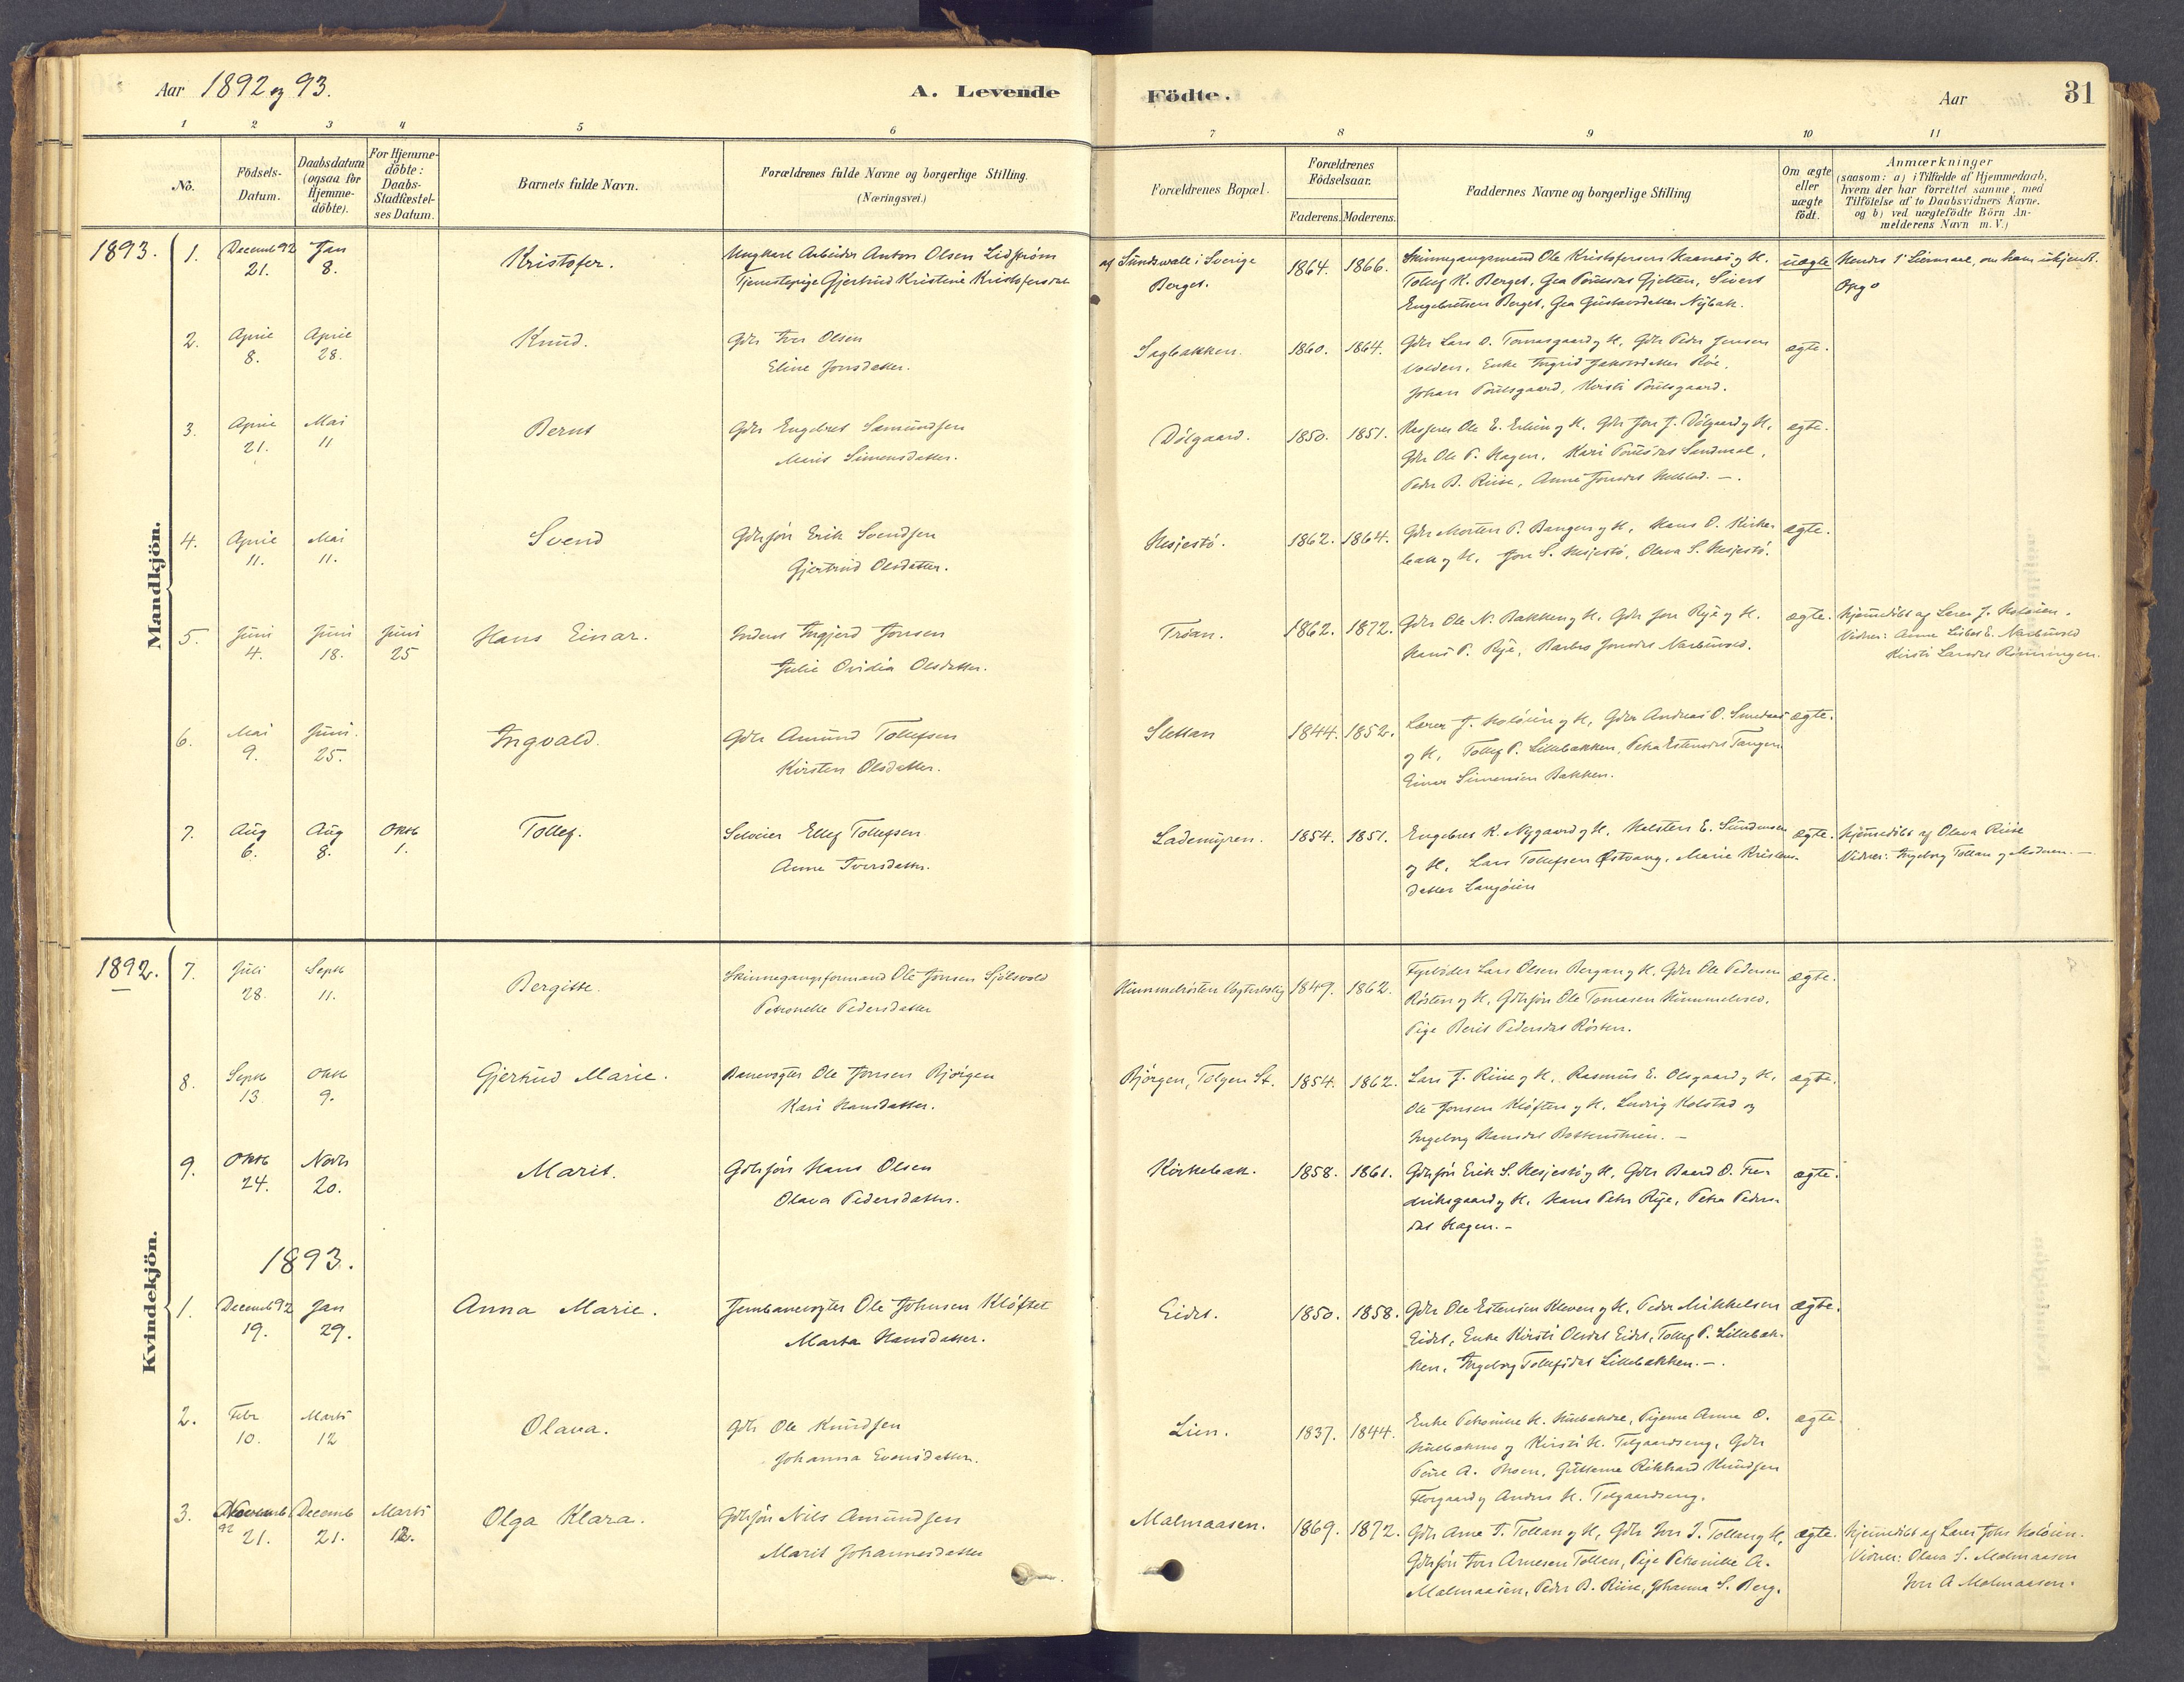 Aar 1892 og 93.
A. Levende Födte.
Aar
31
1 2 3 4 5 6 7 8 9 10 11
No.
Födsels-Datum.
Daabsdatum (ogsaa for Hjemme-döbte).
For Hjemme-döbte: Daabs-Stadfæstel-ses Datum.
Barnets fulde Navn.
Forældrenes fulde Navne og borgerlige Stilling. (Næringsvei.)
Forældrenes Bopæl.
Forældrenes Födselsaar.
Faderens. Moderens.
Faddernes Navne og borgerlige Stilling
Om ægte eller uægte födt.
Anmærkninger
(saasom: a) i Tilfælde af Hjemmedaab,
hvem der har forrettet samme, med
Tilföielse af to Daabsvidners Navne.
og b) ved uægtefödte Börn An-
melderens Navn m. V.)
Mandkjön.
1893. 1. Decemb 92 Jan Kristofer. Ungkarl Arbeider Anton Olsen Lidström af Sundswall i Sverige 1864. 1866. Skinnegangsmand Ole Kristofersen uægte Hendes 1ste Leiermaal, om ham ukjendt.
21. 8. Tjenestepige Gjertrud Kristine Kristofersdat Berget. Tollef K. Berget, Gea Poulsdat Gjelten, Sivert
Engebretsen Berget, Gea Gustavsdatter Nybak.
2. April April Knud. Gdr Iver Olsen Sagbakken. 1860. 1864. Gdr Lars O. Tomasgaard og H, Gdr Peder Jensen ægte.
8. 28. Eline Jonsdatter. Volden, Enke Ingrid Jakobsdatter Röe,
Johan Poulsgaard, Kirsti Poulsgaard.
3. April Mai Bernt Gdr Engebret Samundsen Dölgaard. 1850. 1851. Ole E. Erlien og H. Gdr Jon J. Dölgaard og H. ægte.
21. 11 Marit Simensdatter. Gdr Ole P. Hagen, Kari Poulsdat Sandmæl,
Peder B. Riise, Anne Jonsdat
4. April Mai Svend Gdrsön Erik Svendsen Hesjestö. 1862. 1864. Gdr Morten P. Bangen og H, Hans O. Kirke- ægte.
11. 11. Gjertrud Olsdatter. bak og H, Jon S. Hesjestö, Olava S. Hesjestö.
5. Juni Juni Juni Hans Einar. Inderst Ingjerd Jonsen Tröan. 1862. 1872. Gdr Ole N. Bakken og H, Gdr Jon Rye og H. ægte. Hjemmedöbt af Lærer J. Holöien.
4. 18. 25 Julie Ovidia Olsdatter. Hans P. Rye, Barbro Jonsdat Narbuvold. Vidner: Anne Lisbet E. Narbuvold
Kirsti Larsdat Rönningen.
6. Mai Juni. Ingvald. Gdr Amund Tollefsen Slettan 1844. 1852. Lærer J. Holöien og H, Gdr Andreas O. Smedaas ægte.
9. 25. Kirsten Olsdatter. og H, Tollef P. Lillebakken, Petra Estensdat Tangen
Einar Simensen Bakken.
7. Aug Aug Oktb Tollef. Selveier Ellef Tollefsen Lademyren. 1854. 1851. Engebret K. Nygaard og H. Halsten E. Sundmoen ægte. Hjemmedöbt af Olava Riise
6. 8. 1. Anne Iversdatter. og H, Lars Tollefsen Østvang, Marie Kristens- Vidner: Ingeborg Tollan og Moderen. –
datter Langöien
Kvindekjön.
1892. 7. Juli Septb Bergitte. Skinnegangsformand Ole Jonsen Sjölsvold Hummelvolden Vogterbolig 1849. 1862. Lars Olsen Bergan og H. Gdr Ole Pedersen ægte.
28. 11. Petronelle Pedersdatter Rösten og H, Gdrsön Ole Tomasen Hummelvold,
Pige Berit Pedersdat Rösten.
8. Septb Oktb Gjertrud Marie. Banevogter Ole Jonsen Bjorgen Bjorgen, Tolgen St. 1854. 1862. Lars J. Riise og H. Rasmus E. Olsgaard og H, ægte.
13 9. Kari Hansdatter. Ole Jonsen Klöften og H. Ludvig Kolstad og
Ingeborg Hansdat
9. Oktb Novb Marit. Gdrsön Hans Olsen Kirkebak. 1858. 1861. Gdrsön Erik S. Hesjestö og H, Gdr Baard O. Fre- ægte.
24. 20. Olava Pedersdatter. driksgaard og H. Hans Peter Rye, Petra Peders-
dat Hagen. –
1893.
1. Decemb 92 Jan Anna Marie. Jernbanevogter Ole Johnsen Klöftet Eidet. 1850. 1858. Gdr Ole Estensen Kleven og H, Peder Mikkelsen ægte.
19. 29. Marta Hansdatter. Eidet, Enke Kirsti Olsdat Eidet, Tollef P. Lillebak-
ken, Ingeborg Tollefsdat Lillebakken. –.
2. Febr Marts Olava. Gdr Ole Knudsen Lien. 1837. 1844. Enke Petronille H. Pigerne Anne O. ægte
10. 12 Johanna Evensdatter. og Kirsti H. Tolgaardseng, Gdr
Poul A. Moen, Gutterne Rikhard Knudsen
og Anders H. Tolgaardseng.
3. Novemb Decemb Marts Olga Klara. Gdrsön Nils Amundsen Malmaasen. 1869. 1872. Gdr Arne I. Tollan og H, Gdr Iver I. Tollan og H, ægte. Hjemmedöbt af Lærer John Holöien.
92 21. 21. 12. Marit Johannesdatter Gdrsön Iver Arnesen Tollan, Pige Petronille A. Vidner: Olava S. Malmaasen
Malmaasen, Peder B. Riise, Johanna S. Berg. Iver A Malmaasen.